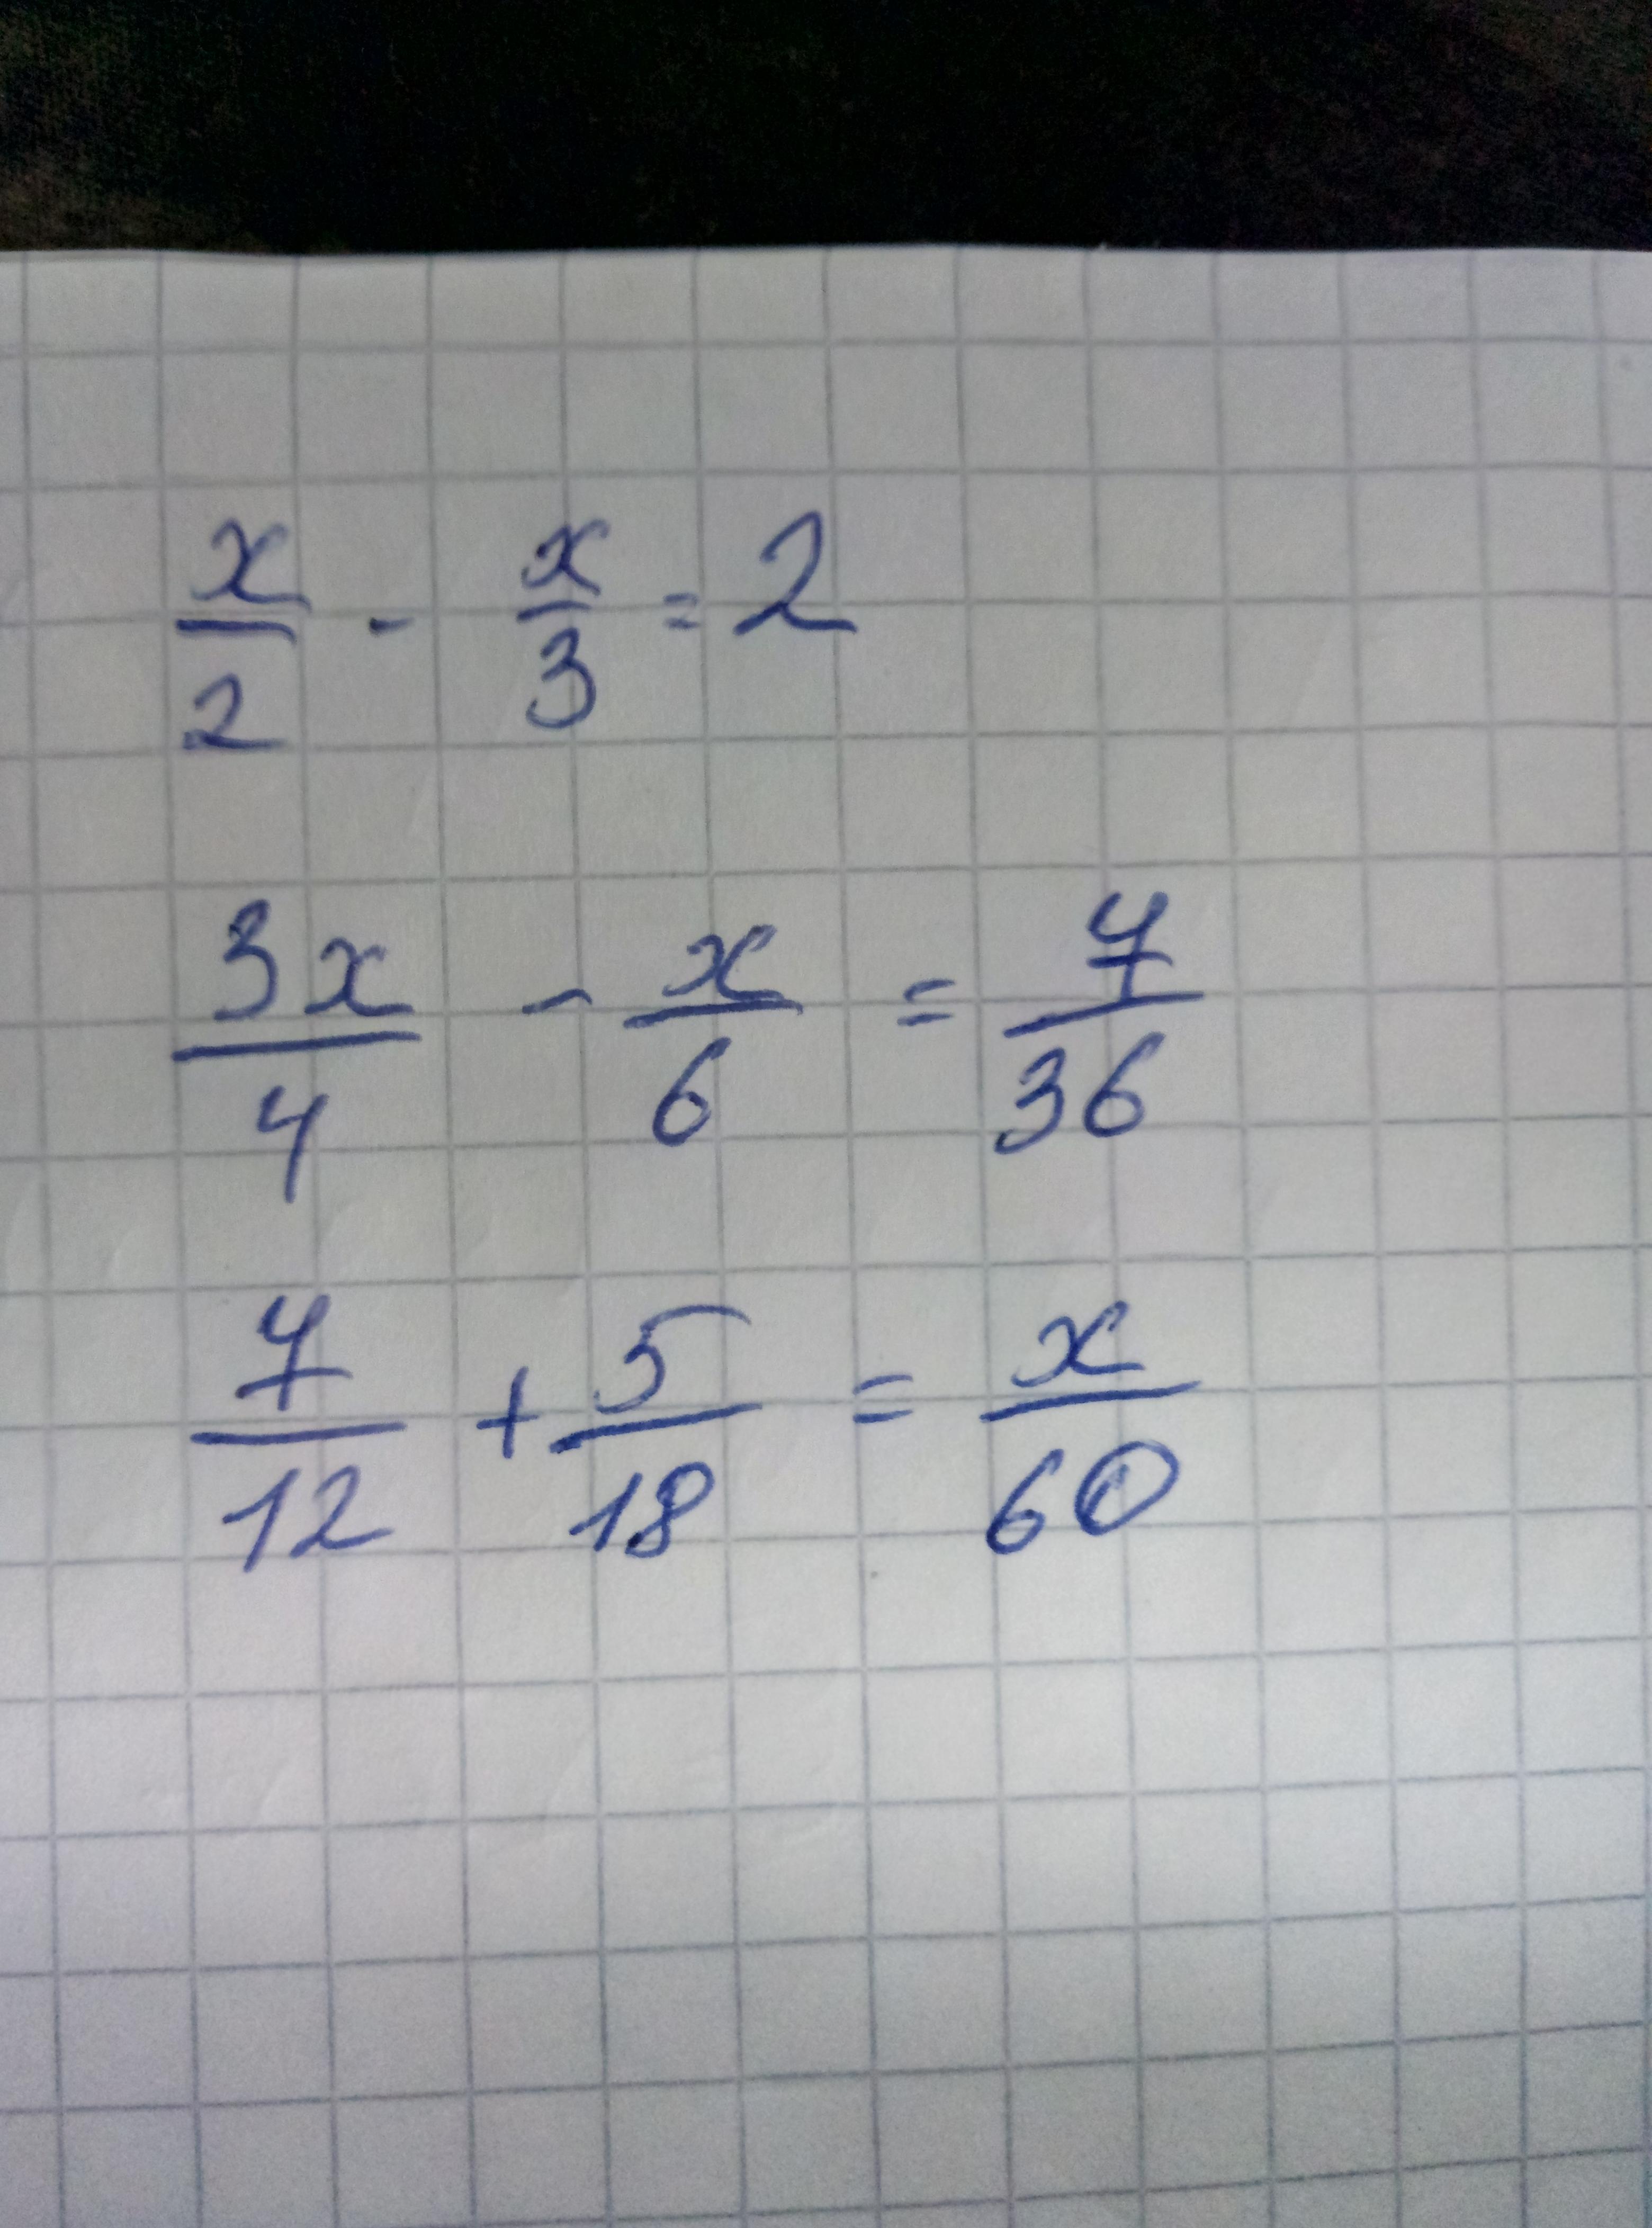 x/2 - x/3 = 2
3x/4 - x/6 = 7/36
7/12 + 5/18 = x/60